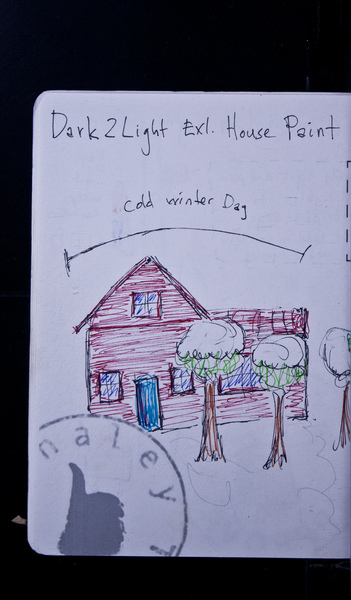 Dark 2 Light Exl. House Paint
Cold Winter Day
naley